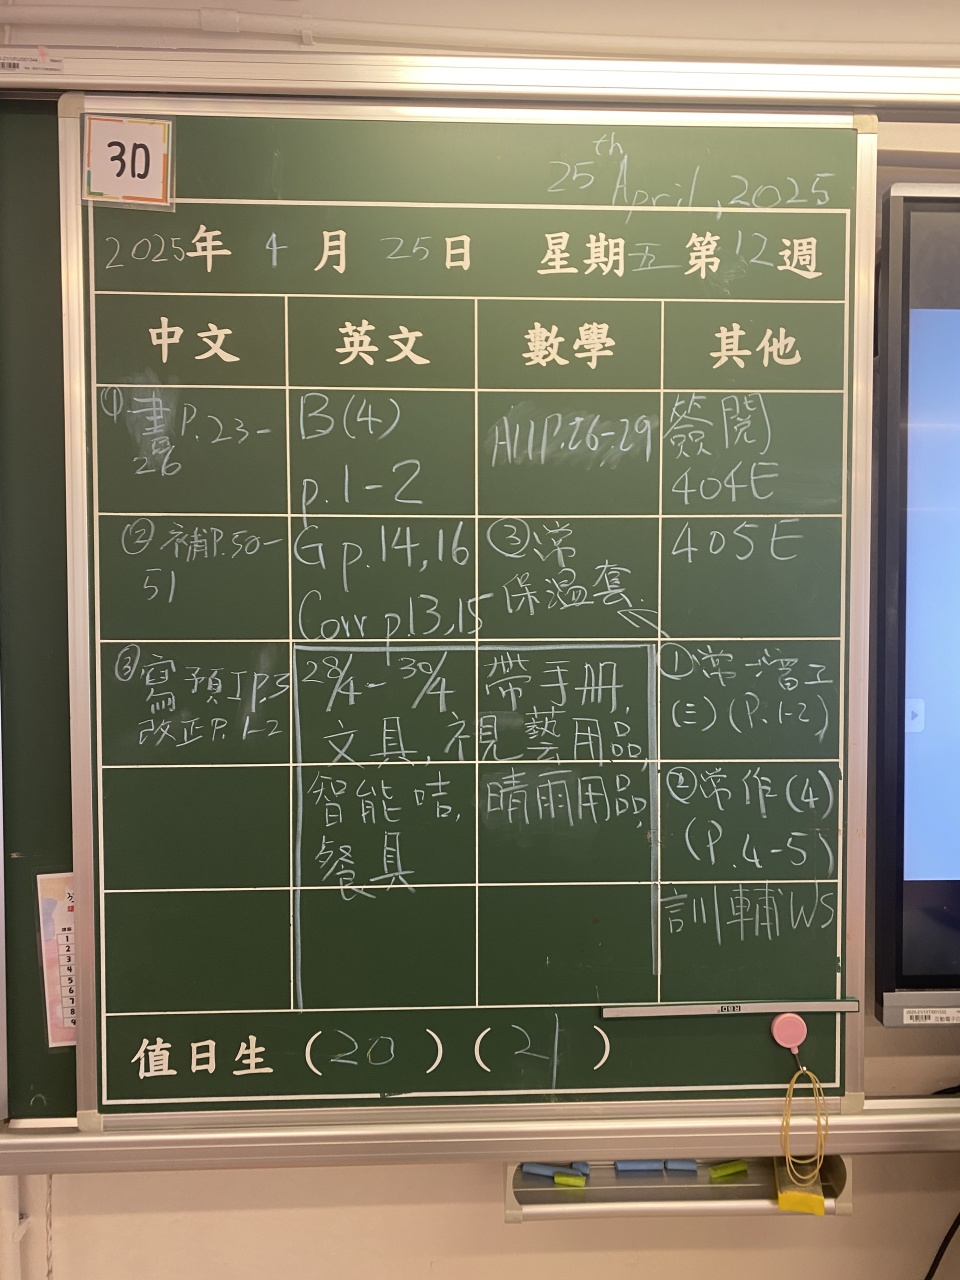 3D
25th April, 2025
2025年 4 月 25日 星期五 第12週
中文 英文 數學 其他
① 書P.23-
26
B(4)
p.1-2
A11P.26-29
簽閱
404E
② 補P.50-
51
G p.14,16
Corr p.13,15
③ 常
保溫套
405E
③ 寫預IP.5
改正P. 1-2
28/4 - 30/4 帶手冊,
文具, 視藝用品,
智能咭, 晴雨用品,
餐具
① 常-增工
(三) (P.1-2)
② 常作(4)
(P.4-5)
訓輔WS
值日生 (20) (21)
1
2
3
4
5
6
7
8
9